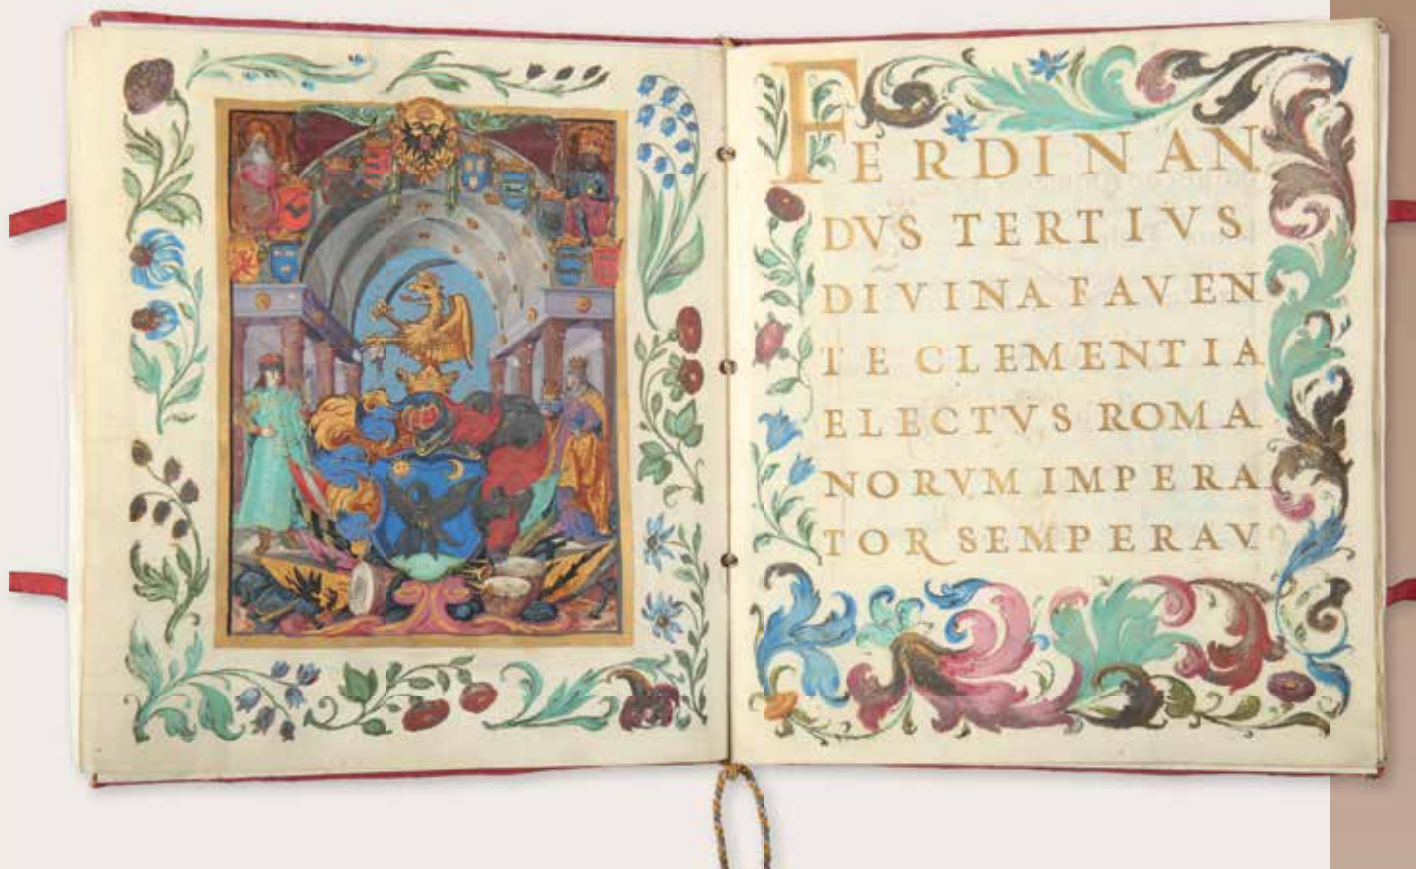 FERDINAN
DVS TERTIVS
DIVINA FAVEN
TE CLEMENTIA
ELECTVS ROMA
NORVM IMPERA
TOR SEMPER AV